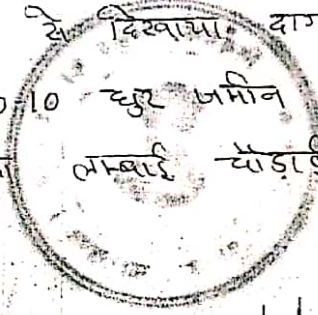 से दिखाया
0-10 धुर जमीन
लम्बाई चौड़ाई